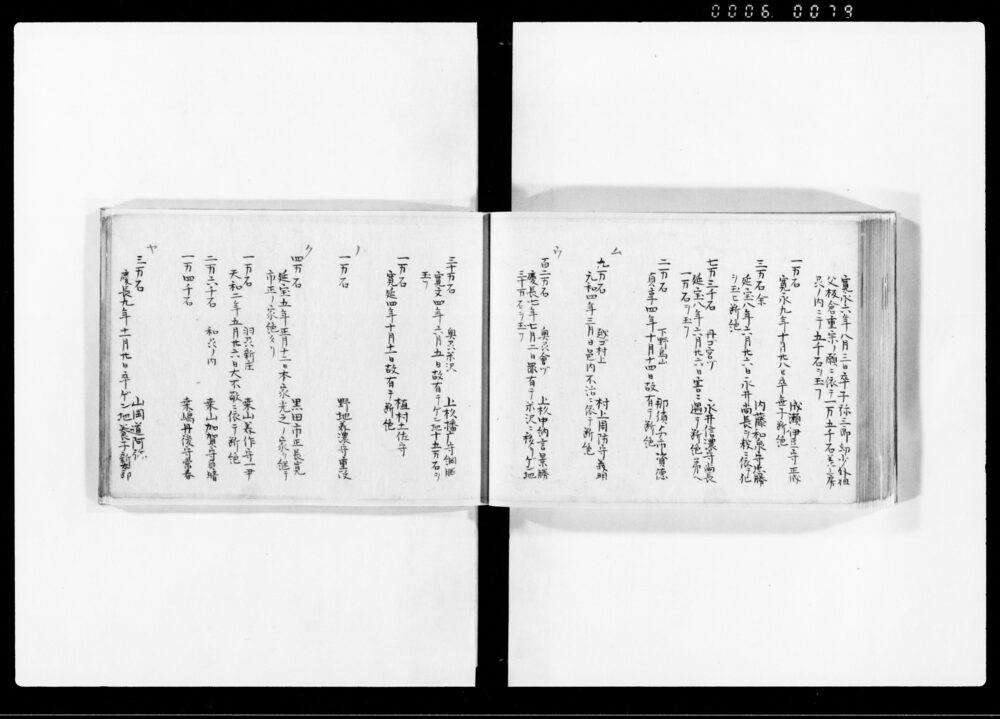 0006 0079
寛永六年八月三日卒子弥三郎幼少外祖
父板倉重宗ノ願ニ依テ一万五千石
ノ内ニテ五千石ヲ玉フ
一万石 成瀬伊豆守正成
寛永九年十月廿八日卒無子断絶
三万石余 内藤和泉守忠勝
延宝八年六月廿六日永井尚長ヲ殺ニ依テ
ヲ玉ヒ断絶
七万三千石 丹コ宮ヅ 永井信濃守尚長
延宝八年六月廿六日害ニ遇テ断絶弟ヘ
一万石ヲ玉フ
二万石 下野烏山 那須 資徳
貞享四年十月十四日故有テ断絶
ム
九万石 越コ村上 村上周防守義明
元和四年三月日邑内不治ニ依テ断絶
ウ
百二万石 奥州會ヅ 上杉中納言景勝
慶長七年七月二日罪有テ米沢ニ移サゲン地
三十万石ヲ玉フ
三十万石 奥州米沢 上杉播广守綱勝
寛文四年六月五日故有テゲン地十五万石ヲ
玉フ
一万石 植村土佐守
寛延四年十月十二日故有テ断絶
ノ
一万石 野地美濃守重
ク
四万石 黒田市正長寛
延宝五年正月十二日本家光之ノ家ヲ継テ
市正ノ家絶タリ
一万石 羽州新庄 桑山美作守一尹
天和二年五月廿六日大不敬ニ依テ断絶
二万六十石 和州ノ内 桑山加賀守貞晴
一万四千石 桒嶋丹後守常春
ヤ
三万石 山岡道阿弥
慶長九年十二月廿日卒ゲン地養子新太郎